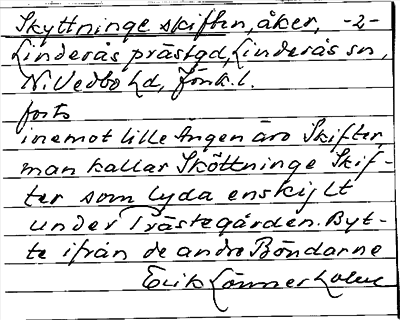 Skyttninge skiften, åker, -2-
Linderås prästgd, Linderås sn,
N. Vedbo hd, Jönk. l.
forts
inemot lille Ängen äro Skifter
man kallar Sköttninge Skif-
ter som lyda enskijlt
under Prästegården. Byt-
te ifrån de andre Böndarne
Erik